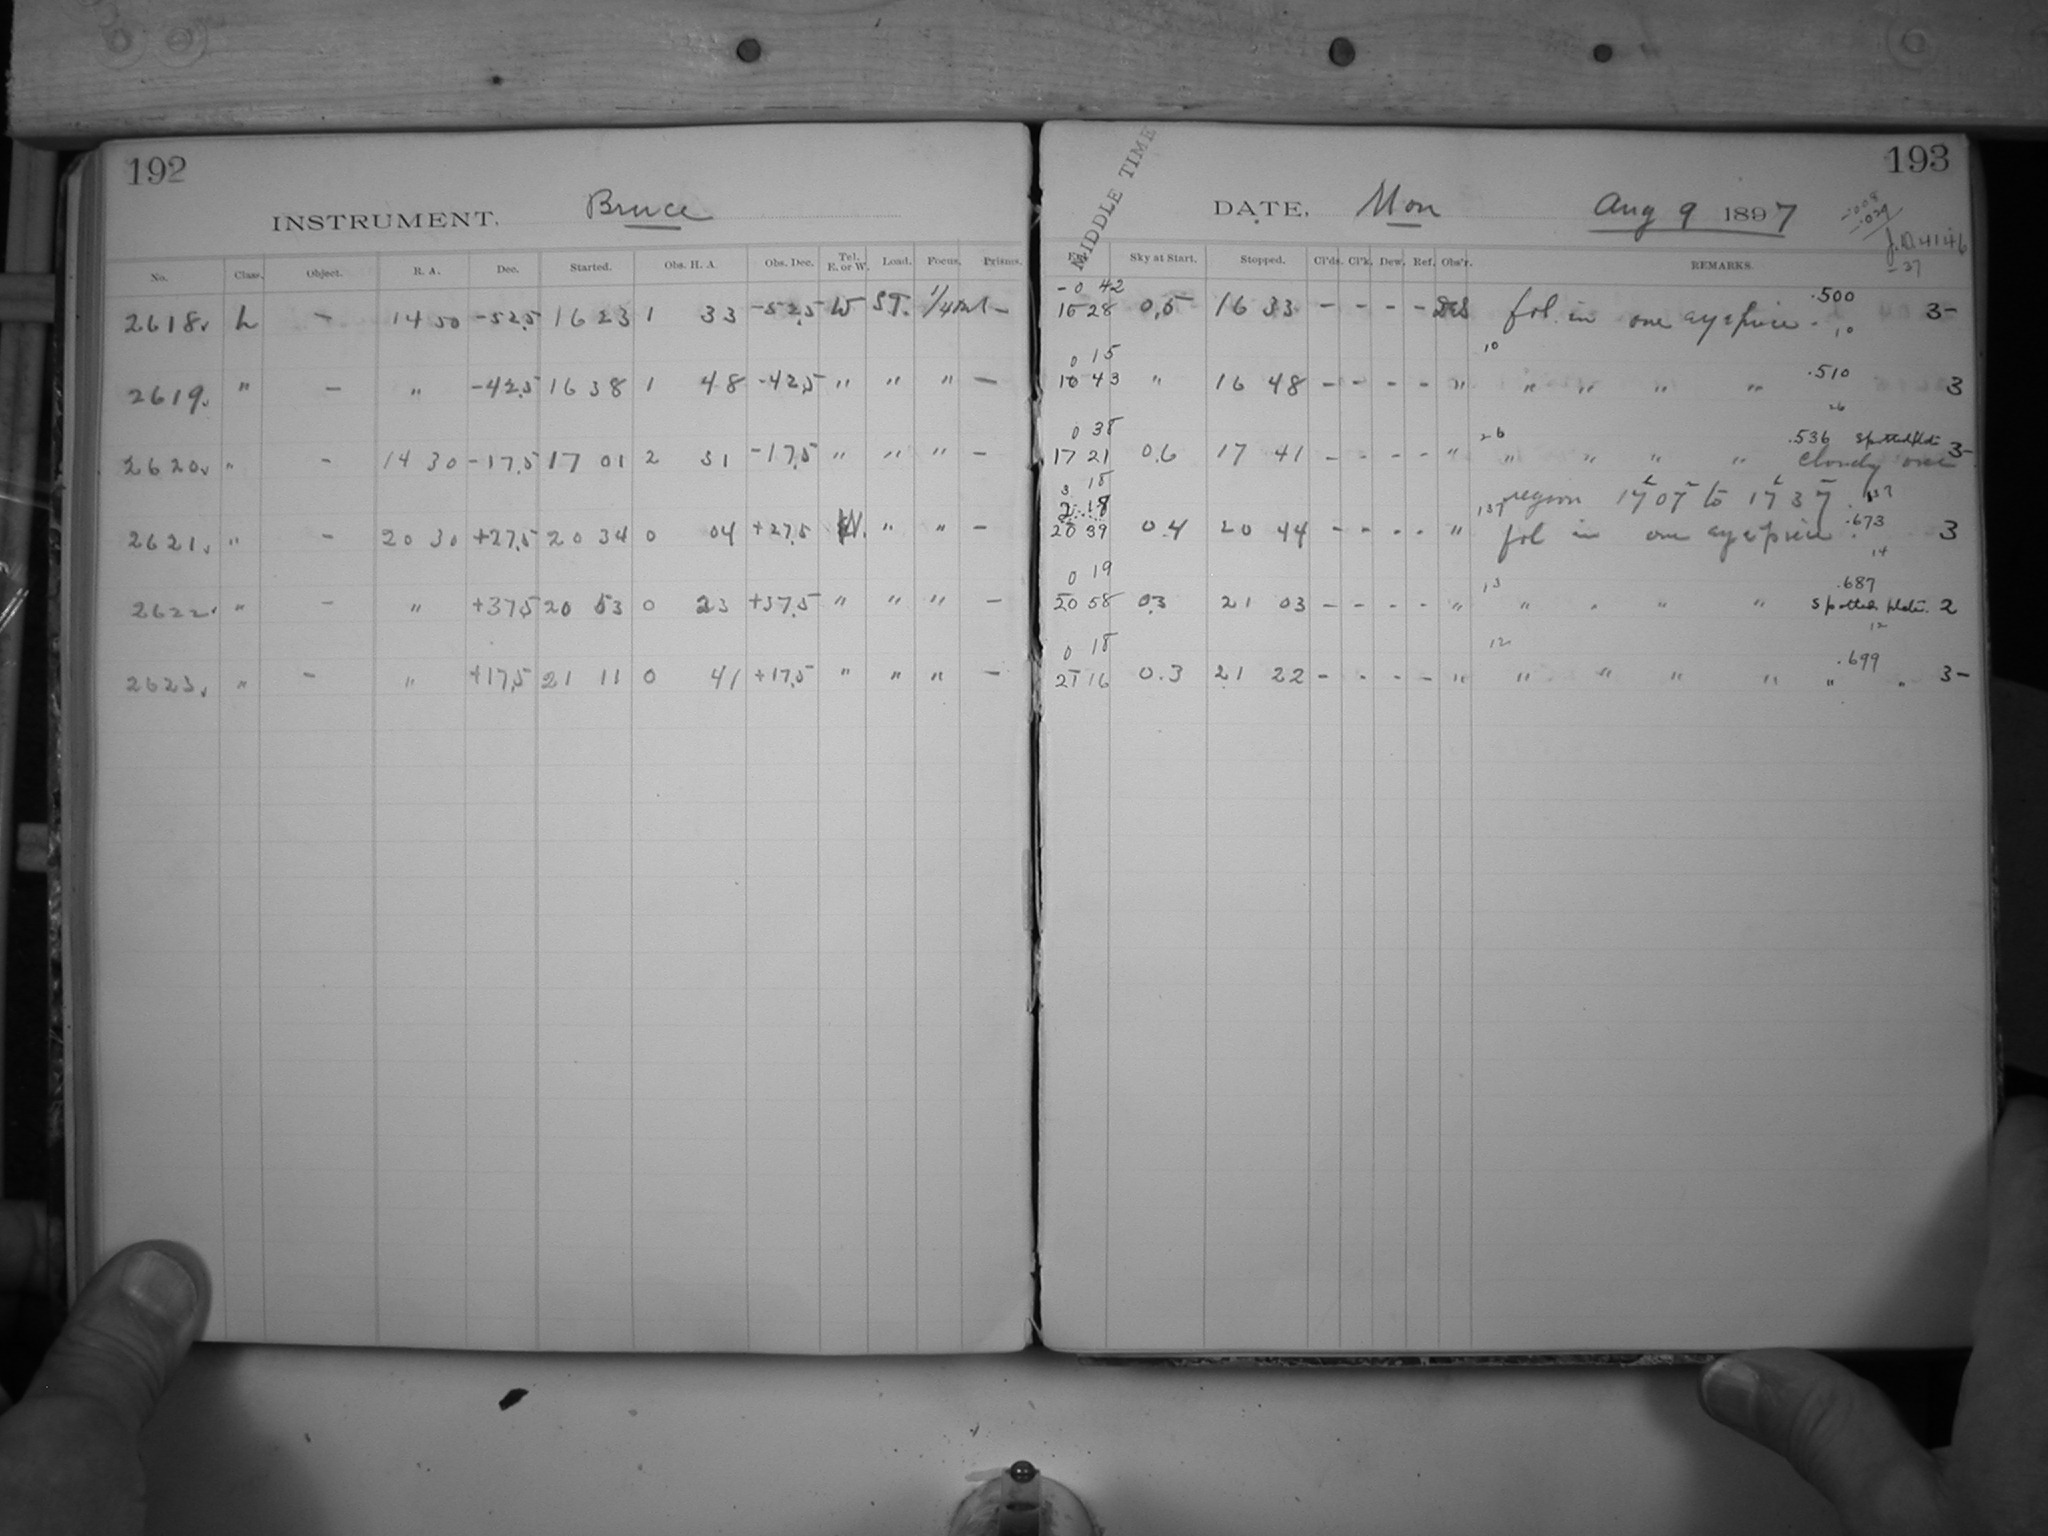 192
INSTRUMENT. Bruce
No. Class. Object. R. A. Dec. Started. Obs. H. A. Obs. Dec. Tel. E. or W. Load. Focus. Prisms.
2618. L - 14 50 -52.5 16 23 1 33 -52.5 W ST. -
2619. " - " -42.5 16 38 1 48 -42.5 " " " -
2620. " - 14 30 -17.5 17 01 2 31 -17.5 " " " -
2621. " - 20 30 +27.5 20 34 0 04 +27.5 W. " " -
2622. " - " +37.5 20 53 0 23 +37.5 " " " -
2623. " - " +17.5 21 11 0 41 +17.5 " " " -
193
MIDDLE TIME
DATE, Mon Aug 9 1897
J.D. 4146
-37
Sky at Start. Stopped. Cl'ds. Cl'k. Dew. Ref. Obs'r. REMARKS.
-0 42 .500
16 28 0.5 16 33 - - - - fol. in one eyepiece. 10 3-
0 15 10 .510
16 43 " 16 48 - - - - " " " " " 3
0 38 26 26
17 21 0.6 17 41 - - - - " " " " " .536 3-
Cloudy over
3 18 region 17 07 to 17 37 137
2 18 137
20 39 0.4 20 44 - - - - " fol in one eyepiece .673 3
0 19 13 14 .687
20 58 0.3 21 03 - - - - " " " " " spotted plate. 2
0 18 12 12 .699
21 16 0.3 21 22 - - - - " " " " " " " 3-